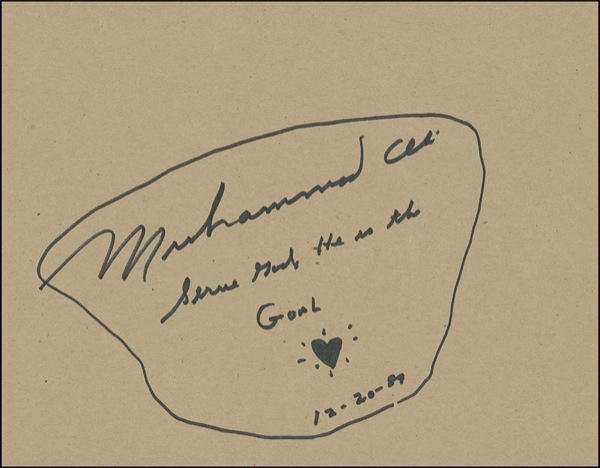 Muhammad Ali
Serve God, He is the
GOAL
12-20-89